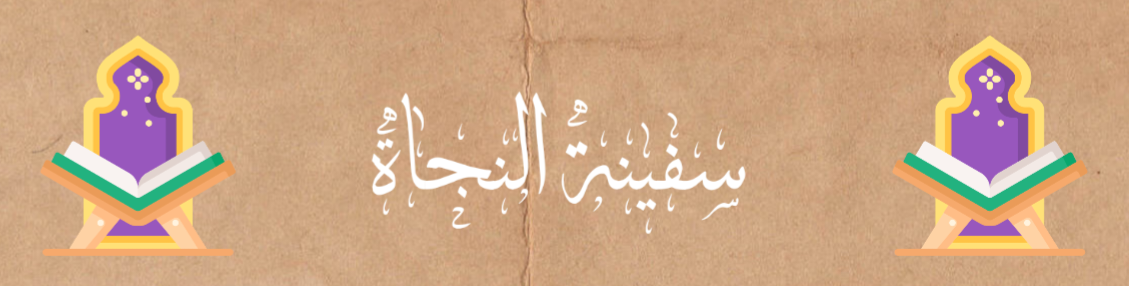 سفينة النجاة